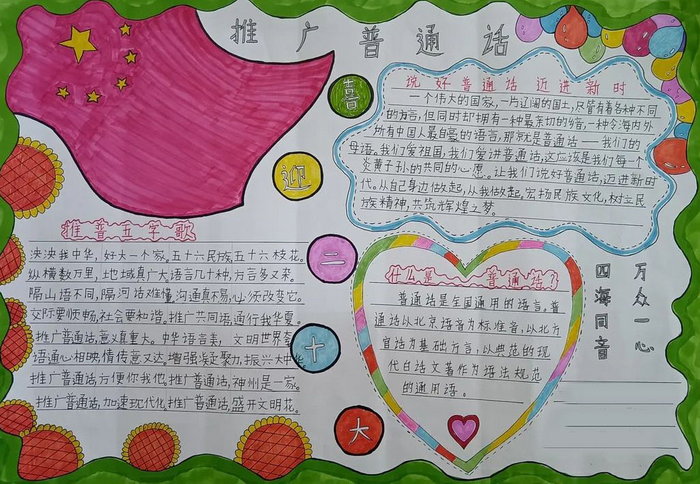 推广普通话
喜
迎
二
十
大
说好普通话 迈进新时
一个伟大的国家,一片辽阔的国土,尽管有着各种不同
的方言,但同时却拥有一种最亲切的乡音,一种令海内外
所有中国人最自豪的语言,那就是普通话——我们的
母语。我们爱祖国,我们爱讲普通话,这应该是我们每一个
炎黄子孙的共同的心愿。让我们说好普通话,迈进新时
代。从自己身边做起,从我做起,宏扬民族文化,树立民
族精神,共筑辉煌之梦。
推普五字歌
泱泱我中华,好大一个家。五十六民族,五十六枝花。
纵横数万里,地域真广大语言几十种,方言多又杂。
隔山语不同,隔河话难懂沟通真不易,心须改变它。
交际要顺畅,社会要和谐。推广共同语,通行我华夏。
推广普通话,意义真重大。中华语言美,文明世界夸
语通心相映,情传意又达,增强凝聚力,振兴大中华
推广普通话方便你我他,推广普通话,神州是一家。
推广普通话,加速现代化推广普通话,盛开文明花。
什么是——普通话?
普通话是全国通用的语言。普
通话以北京语音为标准音,以北方
官话为基础方言,以典范的现
代白话文著作为语法规范
的通用语。
万众一心
四海同音